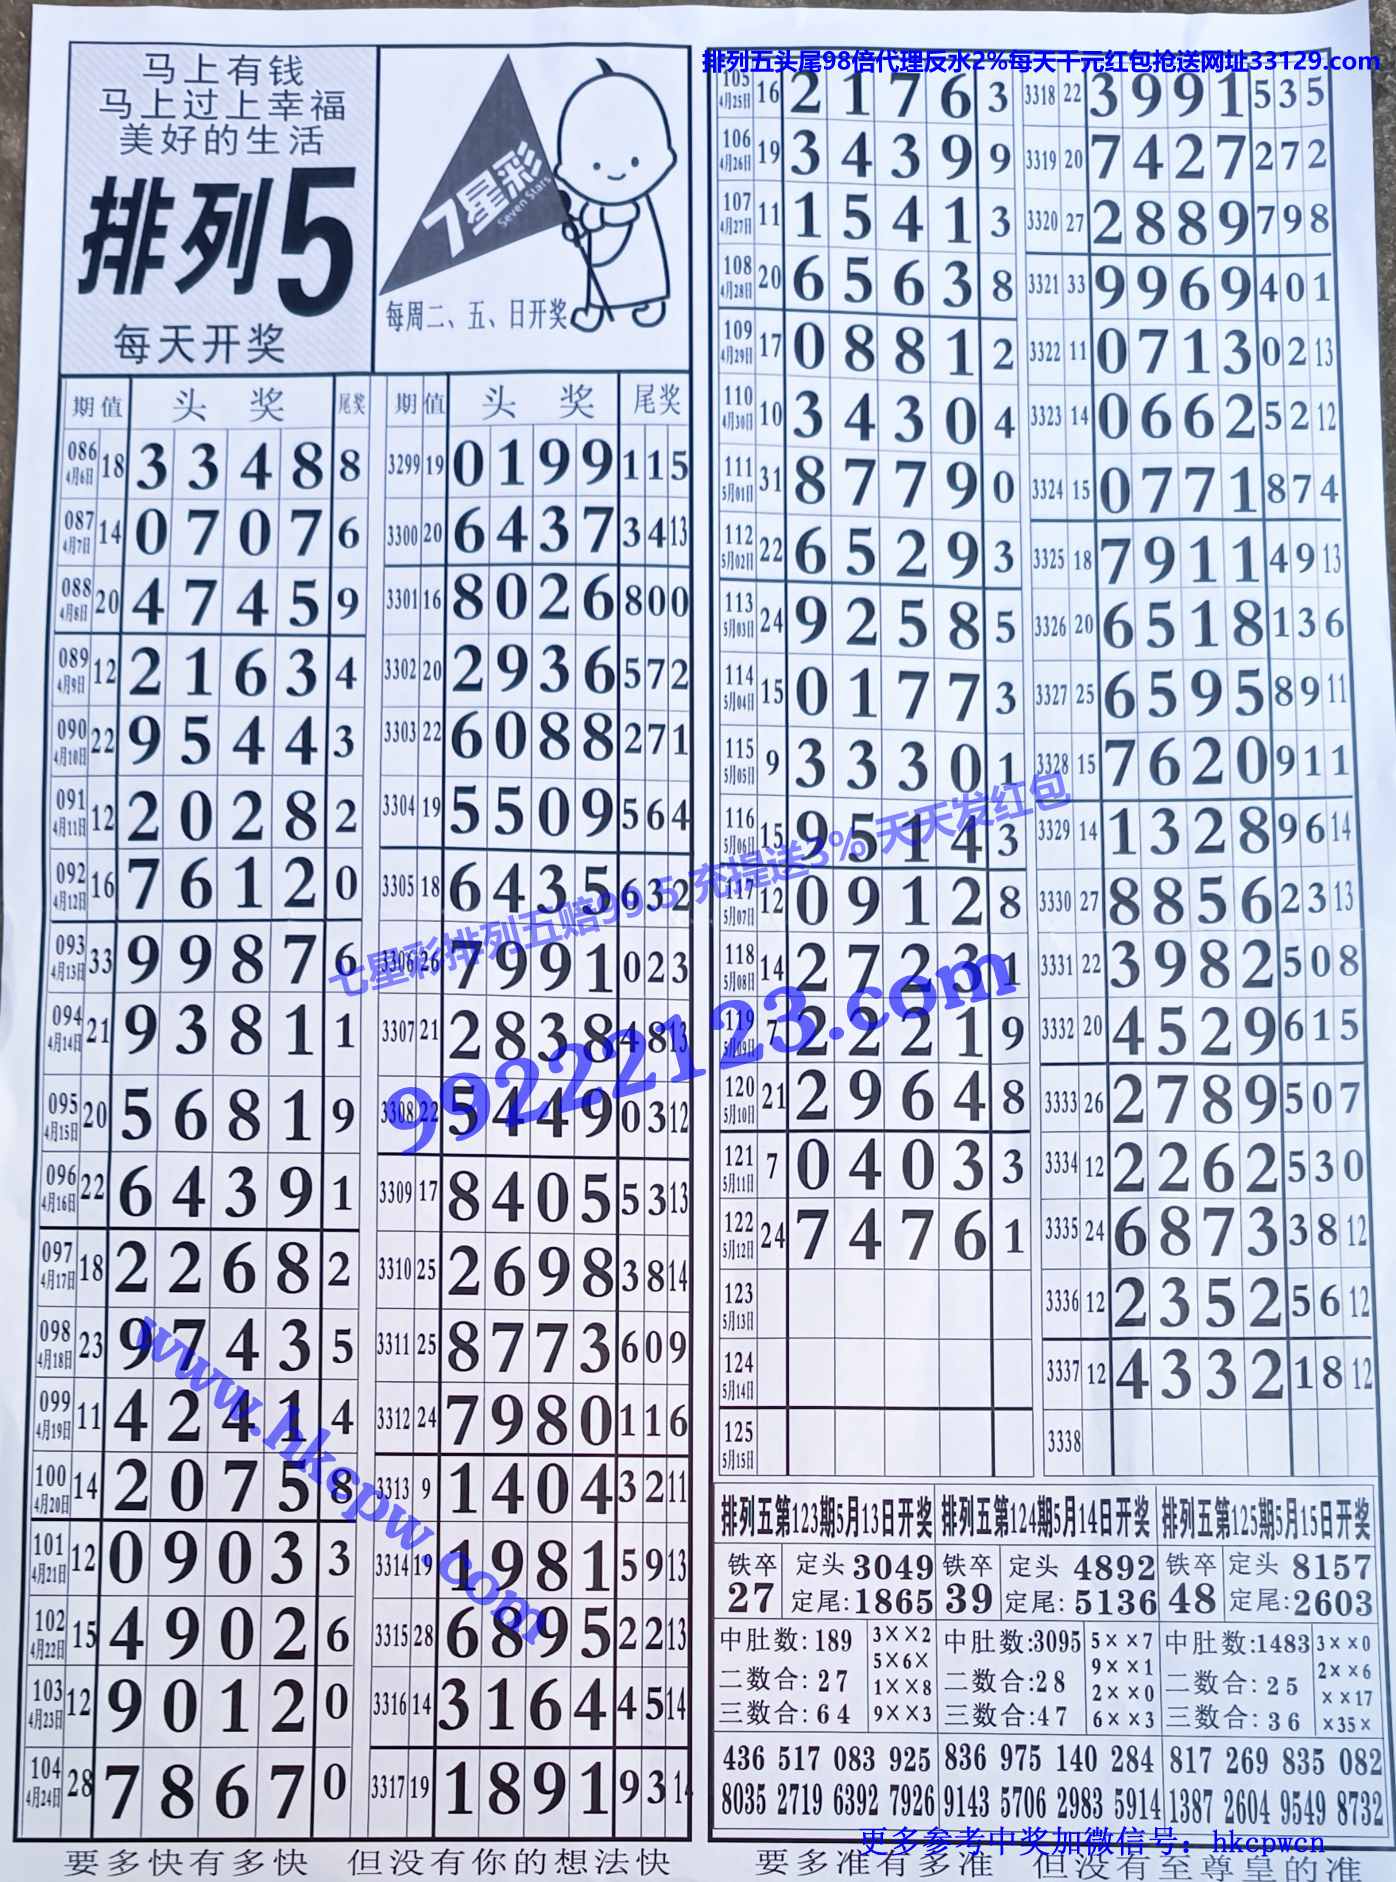 排列五头尾98倍代理反水2%每天千元红包抢送网址33129.com
马上有钱
马上过上幸福
美好的生活
排列5
每天开奖
7星彩
Seven Stars
每周二、五、日开奖
期 值 头 奖 尾奖 期 值 头 奖 尾奖
086 4月6日 18 3 3 4 8 8 3299 19 0 1 9 9 1 1 5
087 4月7日 14 0 7 0 7 6 3300 20 6 4 3 7 3 4 13
088 4月8日 20 4 7 4 5 9 3301 16 8 0 2 6 8 0 0
089 4月9日 12 2 1 6 3 4 3302 20 2 9 3 6 5 7 2
090 4月10日 22 9 5 4 4 3 3303 22 6 0 8 8 2 7 1
091 4月11日 12 2 0 2 8 2 3304 19 5 5 0 9 5 6 4
092 4月12日 16 7 6 1 2 0 3305 18 6 4 3 5 6 3 2
093 4月13日 33 9 9 8 7 6 3306 26 7 9 9 1 0 2 3
094 4月14日 21 9 3 8 1 1 3307 21 2 8 3 8 4 8 13
095 4月15日 20 5 6 8 1 9 3308 22 5 4 4 9 0 3 12
096 4月16日 22 6 4 3 9 1 3309 17 8 4 0 5 5 3 13
097 4月17日 18 2 2 6 8 2 3310 25 2 6 9 8 3 8 14
098 4月18日 23 9 7 4 3 5 3311 25 8 7 7 3 6 0 9
099 4月19日 11 4 2 4 1 4 3312 24 7 9 8 0 1 1 6
100 4月20日 14 2 0 7 5 8 3313 9 1 4 0 4 3 2 11
101 4月21日 12 0 9 0 3 3 3314 19 1 9 8 1 5 9 13
102 4月22日 15 4 9 0 2 6 3315 28 6 8 9 5 2 2 13
103 4月23日 12 9 0 1 2 0 3316 14 3 1 6 4 4 5 14
104 4月24日 28 7 8 6 7 0 3317 19 1 8 9 1 9 3 14
要多快有多快 但没有你的想法快
105 4月25日 16 2 1 7 6 3 3318 22 3 9 9 1 5 3 5
106 4月26日 19 3 4 3 9 9 3319 20 7 4 2 7 2 7 2
107 4月27日 11 1 5 4 1 3 3320 27 2 8 8 9 7 9 8
108 4月28日 20 6 5 6 3 8 3321 33 9 9 6 9 4 0 1
109 4月29日 17 0 8 8 1 2 3322 11 0 7 1 3 0 2 13
110 4月30日 10 3 4 3 0 4 3323 14 0 6 6 2 5 2 12
111 5月01日 31 8 7 7 9 0 3324 15 0 7 7 1 8 7 4
112 5月02日 22 6 5 2 9 3 3325 18 7 9 1 1 4 9 13
113 5月03日 24 9 2 5 8 5 3326 20 6 5 1 8 1 3 6
114 5月04日 15 0 1 7 7 3 3327 25 6 5 9 5 8 9 11
115 5月05日 9 3 3 3 0 1 3328 15 7 6 2 0 9 1 1
116 5月06日 15 9 5 1 4 3 3329 14 1 3 2 8 9 6 14
117 5月07日 12 0 9 1 2 8 3330 27 8 8 5 6 2 3 13
118 5月08日 14 2 7 2 3 1 3331 22 3 9 8 2 5 0 8
119 5月09日 7 2 2 2 1 9 3332 20 4 5 2 9 6 1 5
120 5月10日 21 2 9 6 4 8 3333 26 2 7 8 9 5 0 7
121 5月11日 7 0 4 0 3 3 3334 12 2 2 6 2 5 3 0
122 5月12日 24 7 4 7 6 1 3335 24 6 8 7 3 3 8 12
123 5月13日 3336 12 2 3 5 2 5 6 12
124 5月14日 3337 12 4 3 3 2 1 8 12
125 5月15日 3338
七星彩排列五赔99.5 充提送3% 天天发红包
99222123.com
www.hkcpw.com
排列五第123期5月13日开奖 排列五第124期5月14日开奖 排列五第125期5月15日开奖
铁卒 定头 3049 铁卒 定头 4892 铁卒 定头 8157
27 定尾:1865 39 定尾:5136 48 定尾:2603
中肚数:189 3××2 中肚数:3095 5××7 中肚数:1483 3××0
二数合:27 5×6× 二数合:28 9××1 二数合:25 2××6
三数合:64 1××8 三数合:47 2××0 三数合:36 ××17
9××3 6××3 ×35×
436 517 083 925 836 975 140 284 817 269 835 082
8035 2719 6392 7926 9143 5706 2983 5914 1387 2604 9549 8732
更多参考中奖加微信号：hkcpwcn
要多准有多准 但没有至尊皇的准